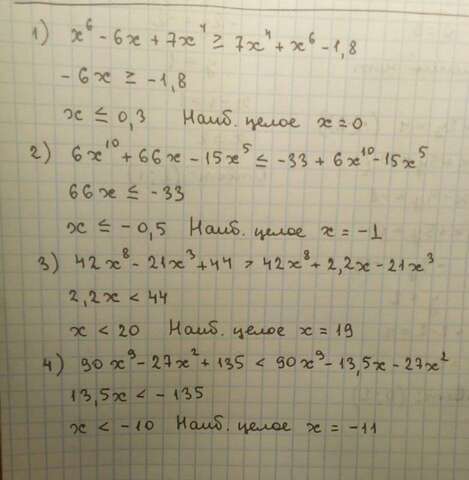 1) x⁶ - 6x + 7x⁴ ≥ 7x⁴ + x⁶ - 1,8
- 6x ≥ -1,8
x ≤ 0,3 Наиб. целое x = 0
2) 6x¹⁰ + 66x - 15x⁵ ≤ -33 + 6x¹⁰ - 15x⁵
66x ≤ -33
x ≤ -0,5 Наиб. целое x = -1
3) 42x⁸ - 21x³ + 44 > 42x⁸ + 2,2x - 21x³
2,2x < 44
x < 20 Наиб. целое x = 19
4) 90x⁹ - 27x² + 135 < 90x⁹ - 13,5x - 27x²
13,5x < -135
x < -10 Наиб. целое x = -11